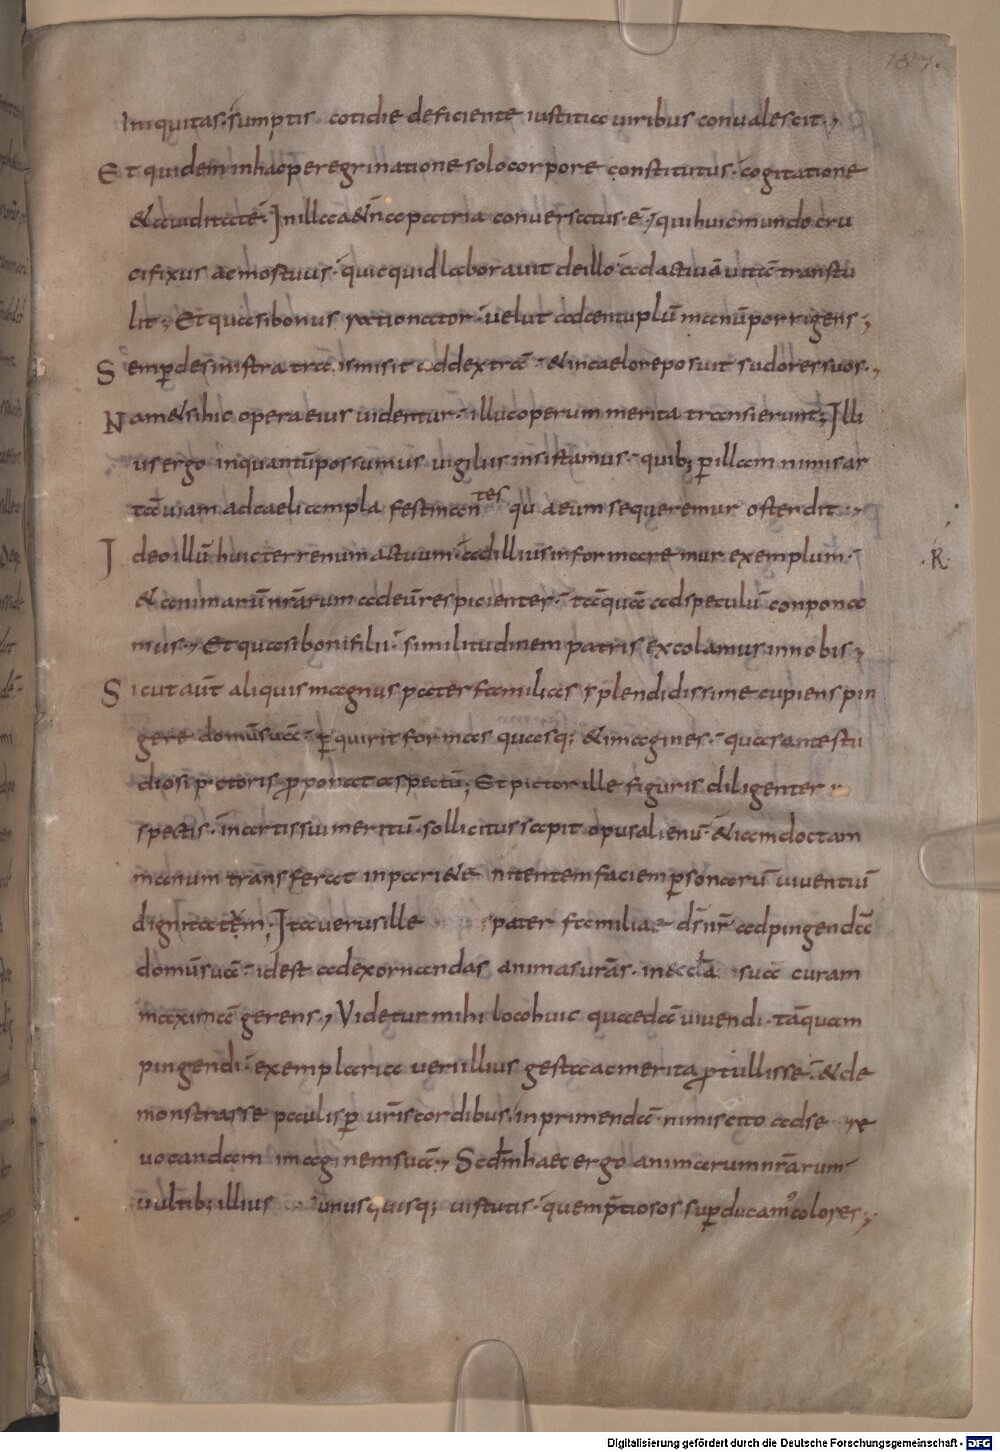 187.
Iniquitas · sumptis cotidie deficiente iustitia uiribus conualescit ;
Et quidem in hac peregrinatione solo corpore constitutus · cogitatione
& auiditate · In illa aeterna patria conuersatus · ē · qui huic mundo cru
cifixus ac mortuus · quicquid laborauit de illo ad actiuā uitā transtu
lit ; Et quasi bonus rationator · uelut ad centuplū manū porrigens ;
Semꝑ de sinistra transmisit ad dextrā · & in caelo reposuit sudores suos ;
Nam & si hic opera eius uidentur · illuc operum merita transierunt ; Illi
us ergo in quantū possumus uigiliis insistamus · quib; ꝑ illam nimis ar
tā uiam ad caeli templa festinantes qu aeum sequeremur ostendit ;
Ideo illū huic terrenum actuum · ad illius informaremur exemplum ·
& animarū nr̄arum ad eū respicientes · tāquā ad speculū conpona
mus ; Et quasi boni filii · similitudinem patris excolamus in nobis ;
R
Sicut aūt aliquis magnus pater familias splendidissime cupiens pin
gere domū suā · ꝑquirit formas quasq; & imagines · quas ante stu
diosi pictoris ꝓponat aspectū ; Et pictor ille figuris diligenter
spectis · in artis suae meritū · sollicitus capit opus alienū · & iam doctam
manum transferat in pariete nitentem faciem ꝑsonarū uiuentiū
dignitatem ; Ita uerus ille pater familiae dn̄s nr̄ ad pingendā
domū suā · idest ad exornandas animas ur̄as · in eccla sua curam
maximā gerens ; Videtur mihi loco huic quaedā uiuendi · tāquam
pingendi · exemplaria ueri illius gesta ac merita ꝓtullisse · & de
monstrasse paulisꝑ ur̄is cordibus · inprimendā nimis cito ad se re
uocandam imaginem suā ; Sed in haec ergo animarum nr̄arum
uultib; illius unusquisq; uirtutis · quem p̄tiosos suꝑducam' colores ;
Digitalisierung gefördert durch die Deutsche Forschungsgemeinschaft - DFG